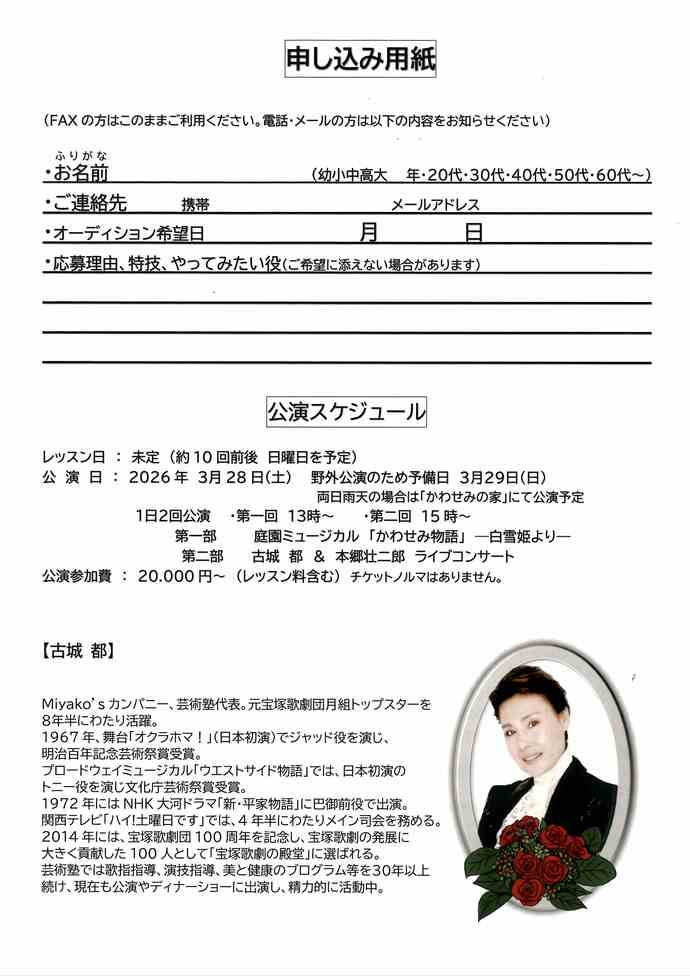 申し込み用紙
（FAX の方はこのままご利用ください。電話・メールの方は以下の内容をお知らせください）
ふりがな
・お名前　（幼小中高大　年・20代・30代・40代・50代・60代～）
・ご連絡先　携帯　メールアドレス
・オーディション希望日　月　日
・応募理由、特技、やってみたい役(ご希望に添えない場合があります)
公演スケジュール
レッスン日 ： 未定 （約 10 回前後 日曜日を予定）
公 演 日 ： 2026 年 3月 28 日(土)　野外公演のため予備日 3月29日(日)
両日雨天の場合は「かわせみの家」にて公演予定
1日2回公演　・第一回 13時～　・第二回 15 時～
第一部　庭園ミュージカル 「かわせみ物語」 ―白雪姫より―
第二部　古城 都 ＆ 本郷壮二郎 ライブコンサート
公演参加費 ： 20.000 円～ （レッスン料含む） チケットノルマはありません。
【古城 都】
Miyako's カンパニー、芸術塾代表。元宝塚歌劇団月組トップスターを
8年半にわたり活躍。
1967 年、舞台「オクラホマ！」（日本初演）でジャッド役を演じ、
明治百年記念芸術祭賞受賞。
ブロードウェイミュージカル「ウエストサイド物語」では、日本初演の
トニー役を演じ文化庁芸術祭賞受賞。
1972 年には NHK 大河ドラマ「新・平家物語」に巴御前役で出演。
関西テレビ「ハイ!土曜日です」では、4 年半にわたりメイン司会を務める。
2014 年には、宝塚歌劇団 100 周年を記念し、宝塚歌劇の発展に
大きく貢献した 100 人として「宝塚歌劇の殿堂」に選ばれる。
芸術塾では歌指指導、演技指導、美と健康のプログラム等を30年以上
続け、現在も公演やディナーショーに出演し、精力的に活動中。